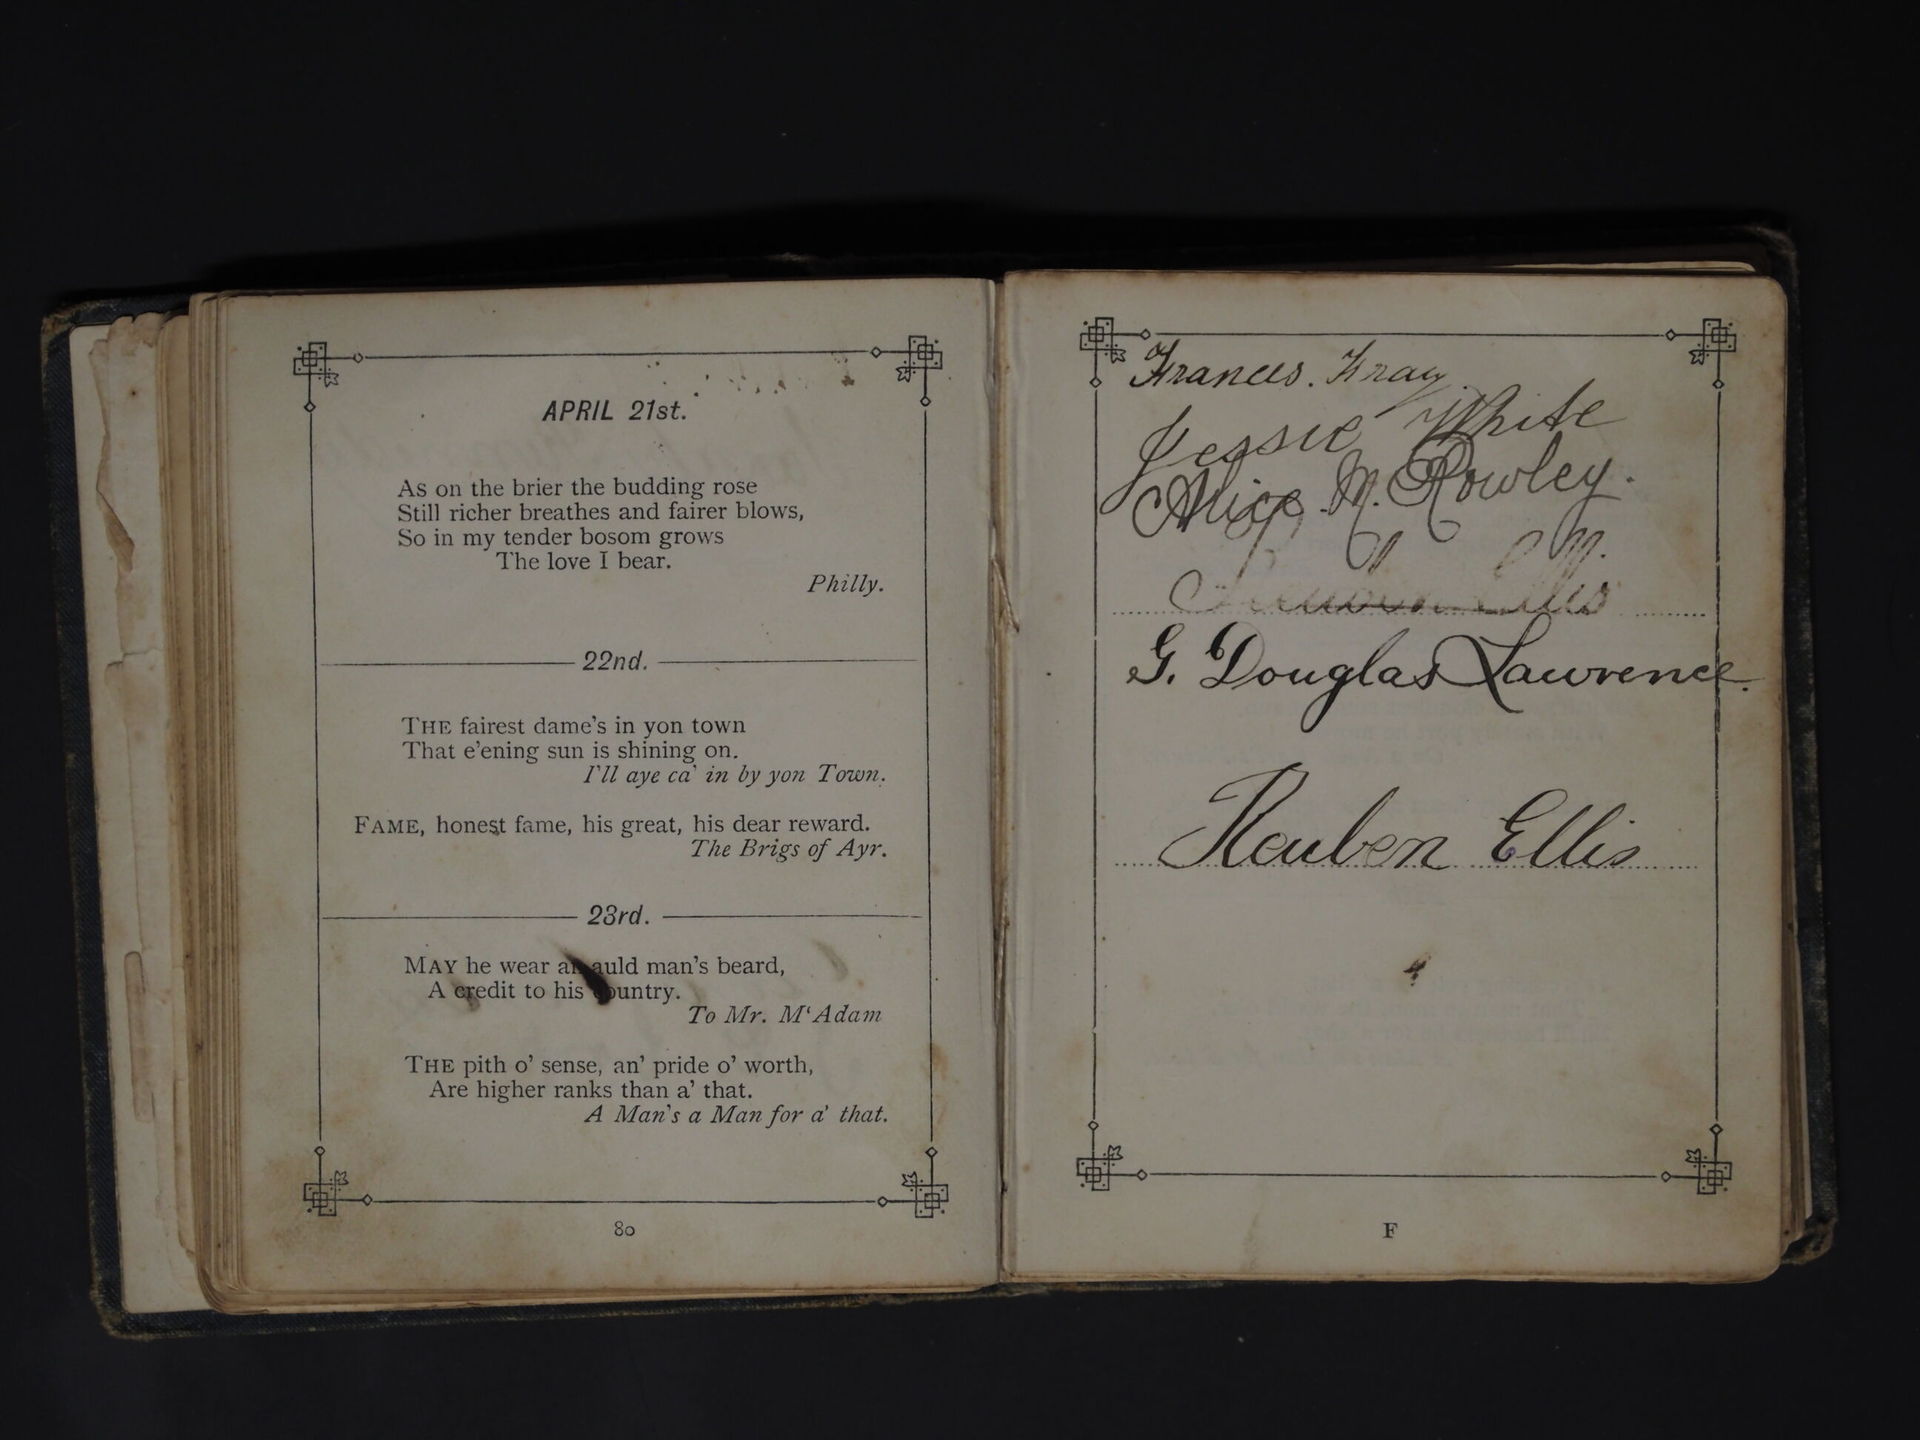 APRIL 21st.
As on the brier the budding rose
Still richer breathes and fairer blows,
So in my tender bosom grows
The love I bear.
Philly.
22nd.
THE fairest dame's in yon town
That e'ening sun is shining on.
I'll aye ca' in by yon Town.
FAME, honest fame, his great, his dear reward.
The Brigs of Ayr.
23rd.
MAY he wear an auld man's beard,
A credit to his country.
To Mr. M‘Adam
THE pith o' sense, an' pride o' worth,
Are higher ranks than a' that.
A Man's a Man for a' that.
80
Frances. Fray.
Jessie White
Alice. M. Rowley.
Reuben Ellis
G. Douglas Lawrence.
Reuben Ellis
F